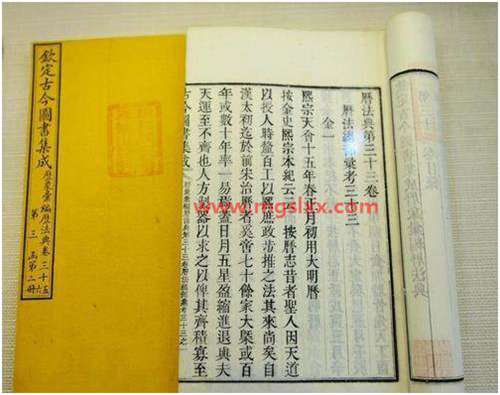 曆法典第三十三卷
曆法總部彙考三十三
金一
熙宗天會十五年春正月初用大明曆
按金史熙宗本紀云云 按曆志昔者聖人因天道
以授人時釐百工以熙庶政步推之法其來尚矣自
漢太初迄於前宋治曆者奚啻七十餘家大槩或百
年或數十年率一易焉蓋日月五星盈縮進退與夫
天運至不齊也人方製器以求之以俾其齊積寡至
古今圖書集成
欽定古今圖書集成
曆象彙編曆法典卷三十五六
第三函第二冊
www.mgslyx.com